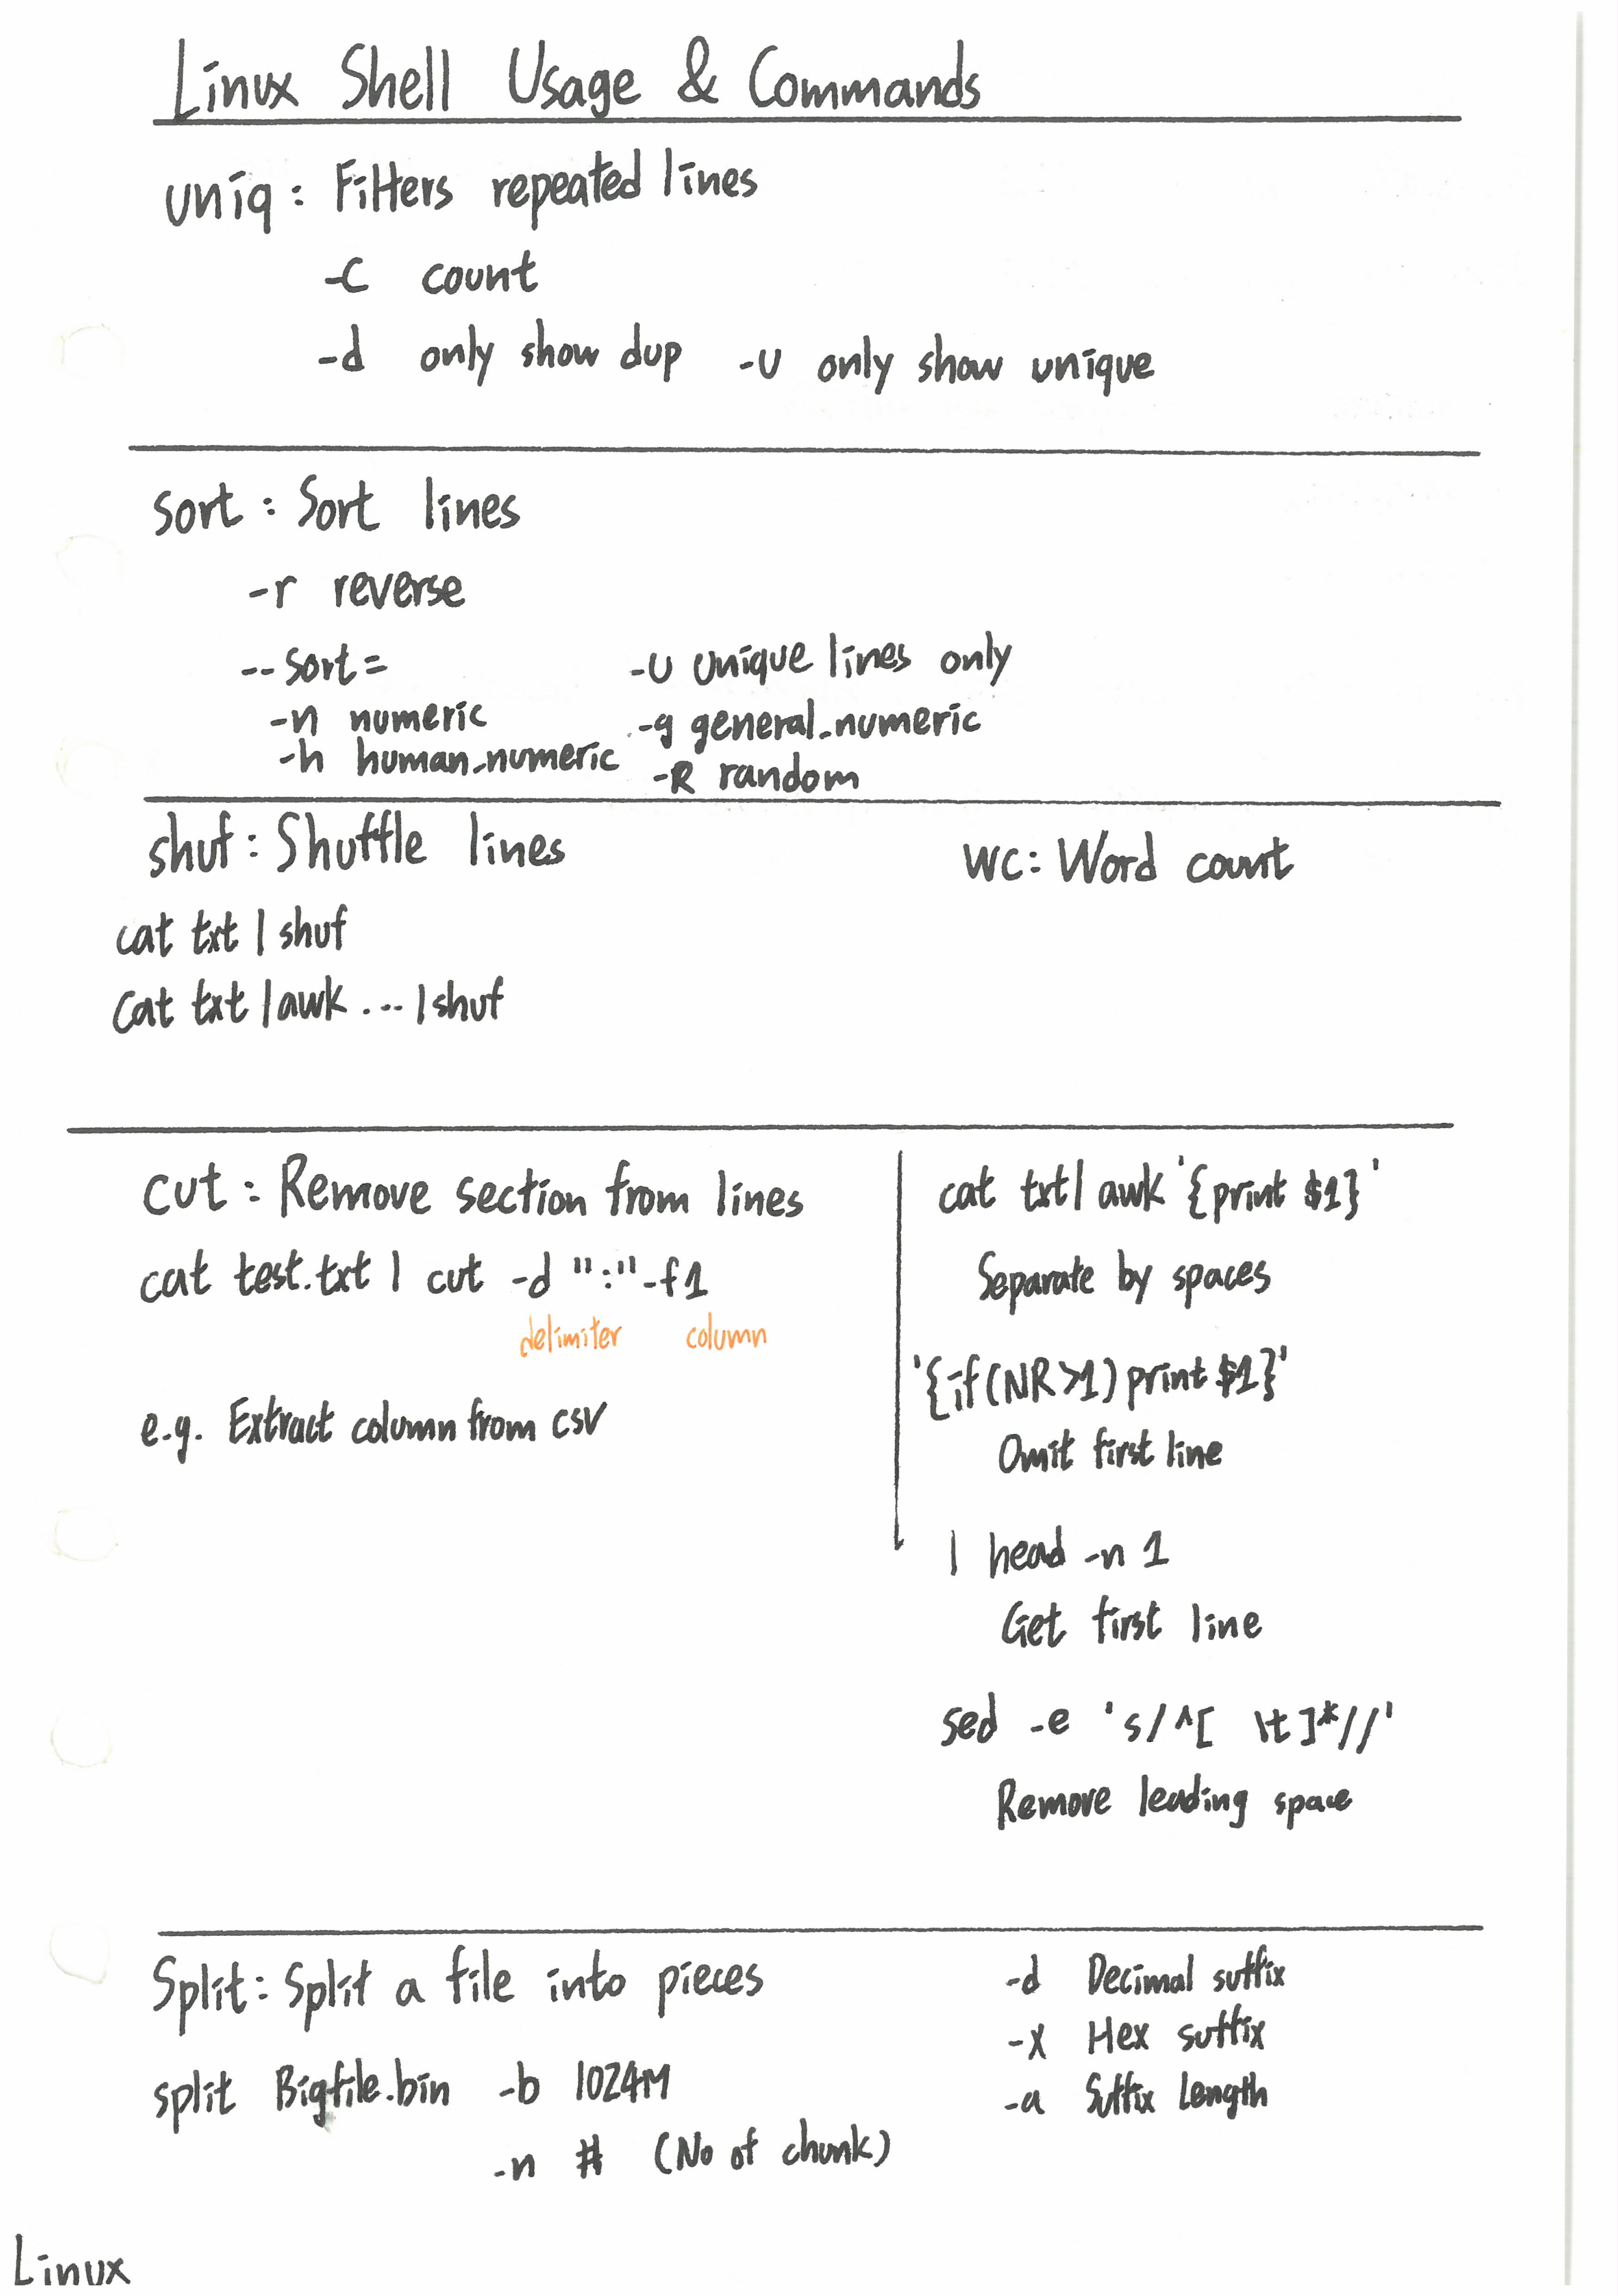 Linux Shell Usage & Commands
uniq: Filters repeated lines
-c count
-d only show dup -u only show unique
sort: Sort lines
-r reverse
--sort= -u unique lines only
-n numeric -g general-numeric
-h human-numeric -R random
shuf: Shuffle lines
cat txt | shuf
cat txt | awk ... | shuf
wc: Word count
cut: Remove section from lines
cat test.txt | cut -d ":" -f1
delimiter column
e.g. Extract column from csv
cat txt | awk '{print $1}'
Separate by spaces
'{if(NR>1) print $1}'
Omit first line
| head -n 1
Get first line
sed -e 's/^[ \t]*//'
Remove leading space
Split: Split a file into pieces
split Bigfile.bin -b 1024M
-n # (No of chunk)
-d Decimal suffix
-x Hex suffix
-a Suffix Length
Linux